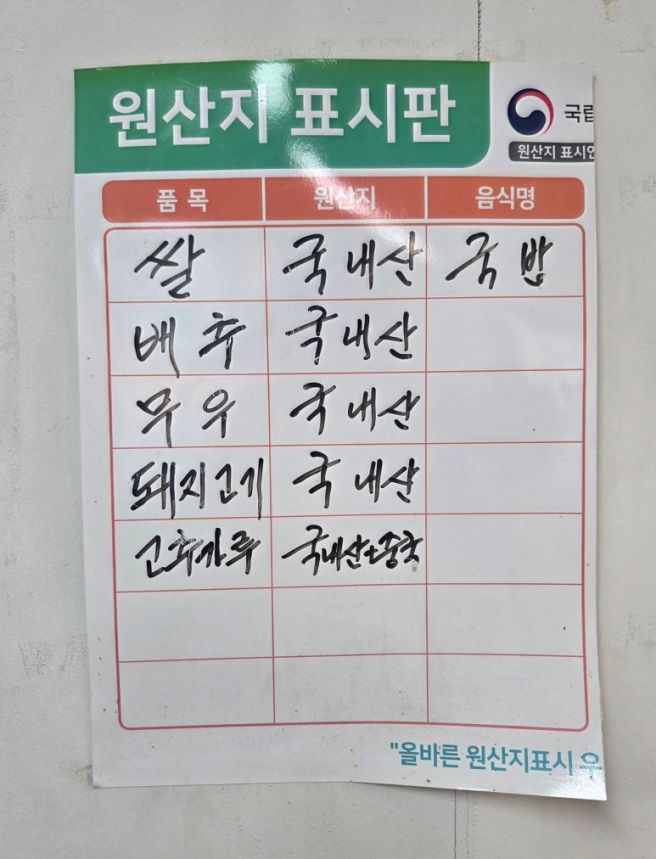 원산지 표시판
국립
원산지 표시안
품 목 원산지 음식명
쌀 국내산 국밥
배추 국내산
무우 국내산
돼지고기 국내산
고추가루 국내산+중국
"올바른 원산지표시 우